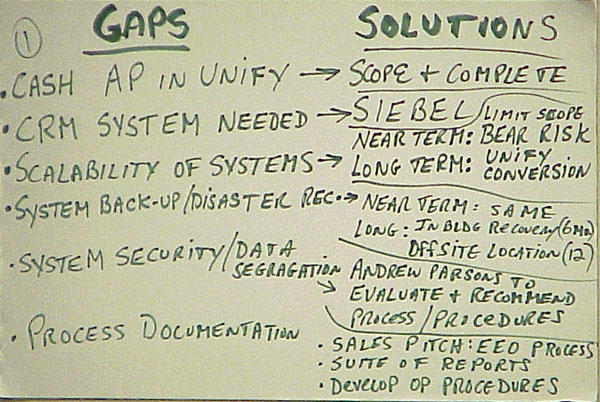 1
GAPS SOLUTIONS
• CASH AP IN UNIFY → SCOPE + COMPLETE
• CRM SYSTEM NEEDED → SIEBEL / LIMIT SCOPE
• SCALABILITY OF SYSTEMS → NEAR TERM: BEAR RISK
LONG TERM: UNIFY CONVERSION
• SYSTEM BACK-UP/DISASTER REC. → NEAR TERM: SAME
LONG: IN BLDG RECOVERY (6MO)
OFFSITE LOCATION (12)
• SYSTEM SECURITY/DATA SEGRAGATION → ANDREW PARSONS TO
EVALUATE + RECOMMEND
PROCESS/PROCEDURES
• PROCESS DOCUMENTATION
• SALES PITCH: EEO PROCESS
• SUITE OF REPORTS
• DEVELOP OP PROCEDURES